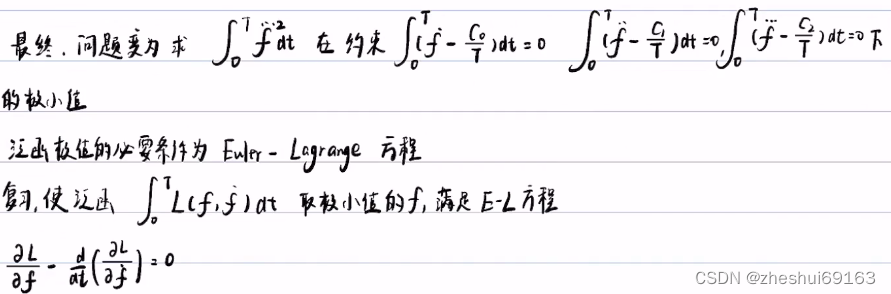 最终,问题变为求 ∫₀ᵀ f⃛² dt 在约束 ∫₀ᵀ(ḟ - C₀/T)dt = 0 ∫₀ᵀ(f̈ - C₁/T)dt = 0, ∫₀ᵀ(f⃛ - C₂/T)dt = 0 下
的极小值
泛函极值的必要条件为 Euler - Lagrange 方程
复习,使泛函 ∫₀ᵀ L(f, ḟ) dt 取极小值的 f, 满足 E-L 方程
∂L/∂f - d/dt(∂L/∂ḟ) = 0
CSDN @zheshui69163